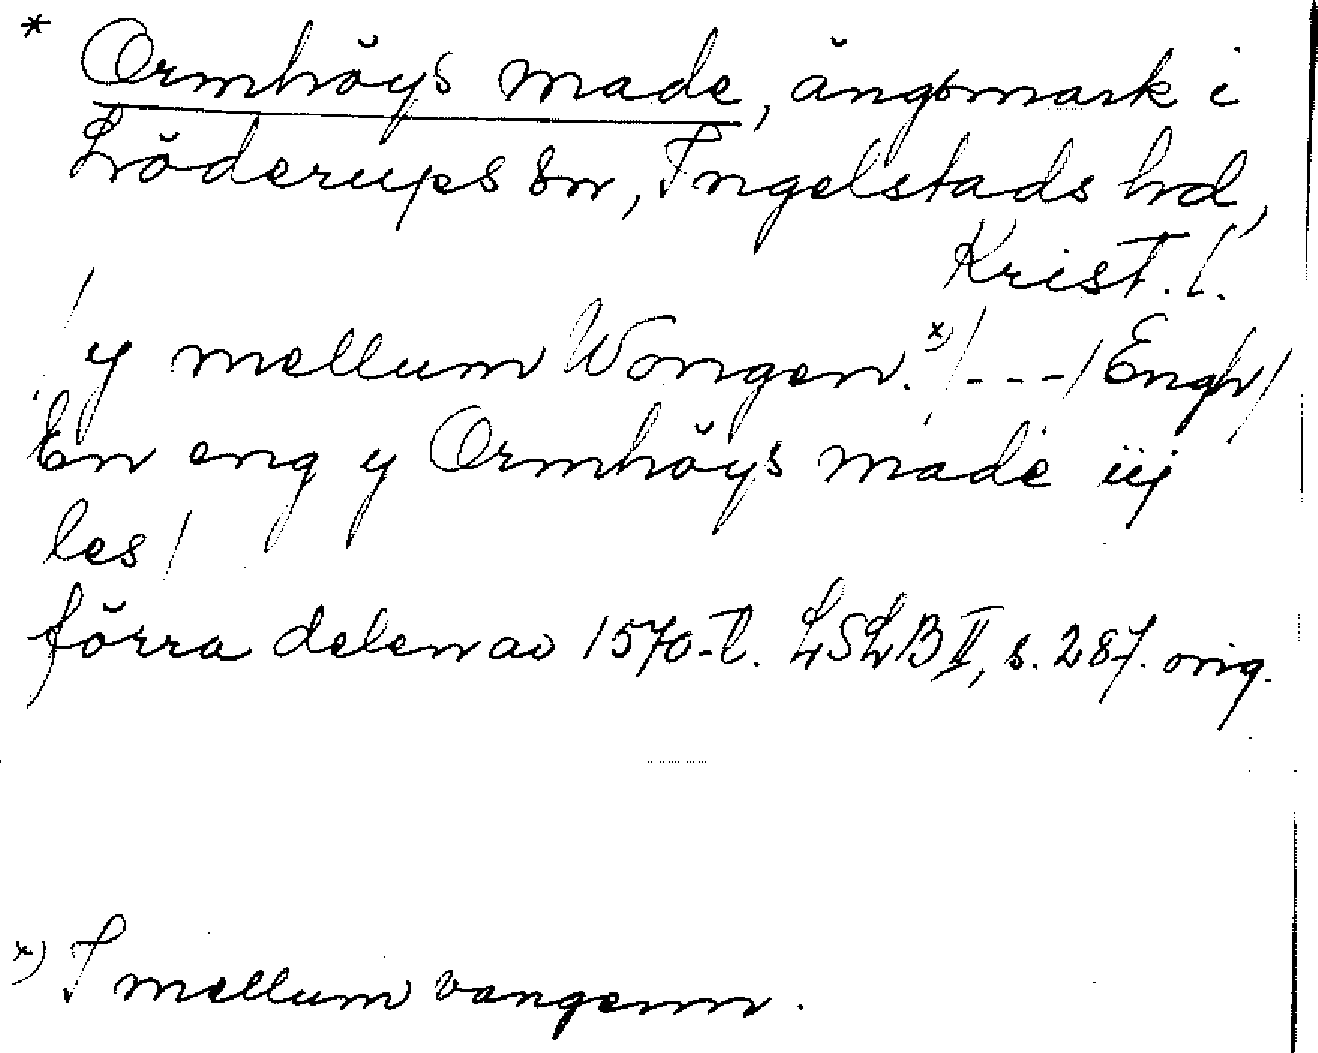 * Ormhöÿs made, ängsmark i
Löderups sn, Ingelstads hd,
Krist. l.
/ y mellum Wongen. x) /---/ Engh /
En eng y Ormhöÿs made iij
les /
förra delen av 1570-t. LSLB II, s. 287. orig.
x) I mellum vangenn.